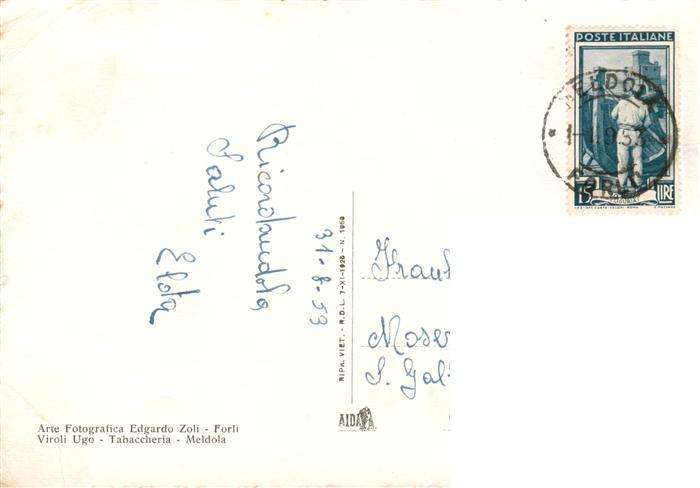 POSTE ITALIANE
MELDOLA
FORLI
15 LIRE
31-8-53
Ricordandola
Saluti
RIPR. VIET. - R.D.L. 7-XI-1925 - N. 1950
Moser
S. Gal
AIDA
Arte Fotografica Edgardo Zoli - Forlì
Viroli Ugo - Tabaccheria - Meldola